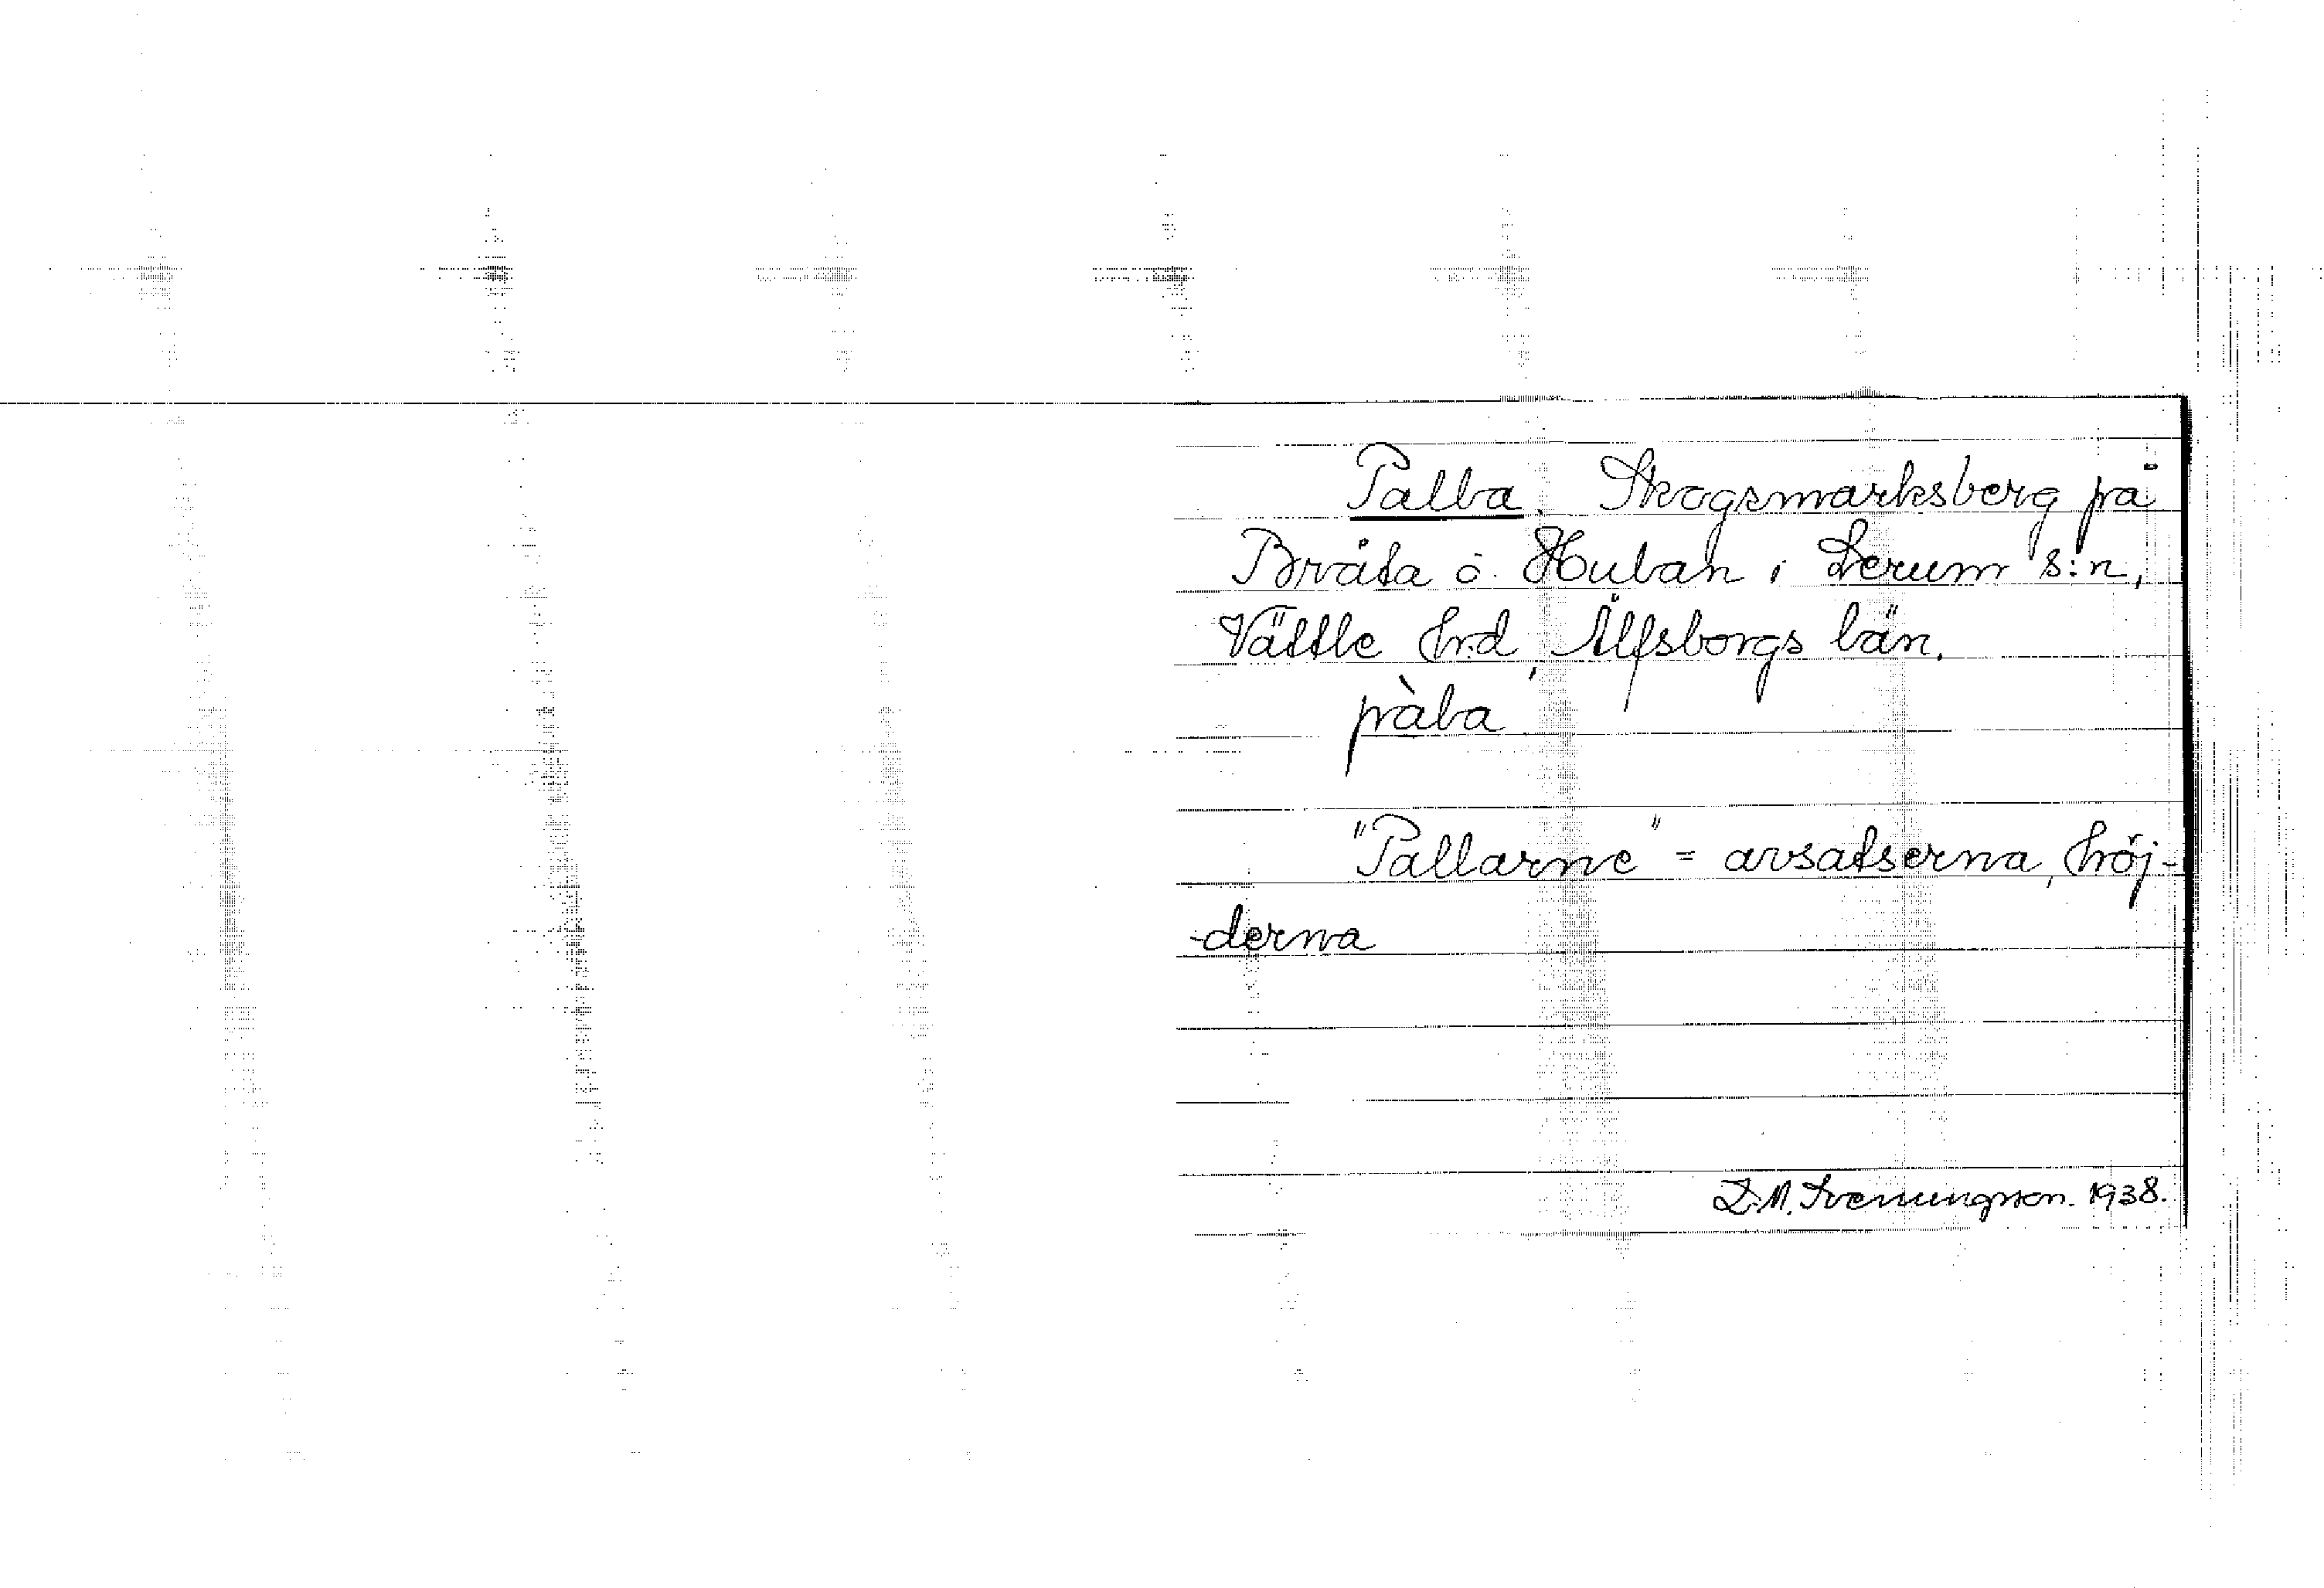 Palla. Skogsmarksberg på
Bråta ö. Hulan i Lerum s:n,
Vättle hrd, Älfsborgs län.
pàla
"Pallarne" = avsatserna, höj-
-derna
L.M. Svenungsson. 1938.